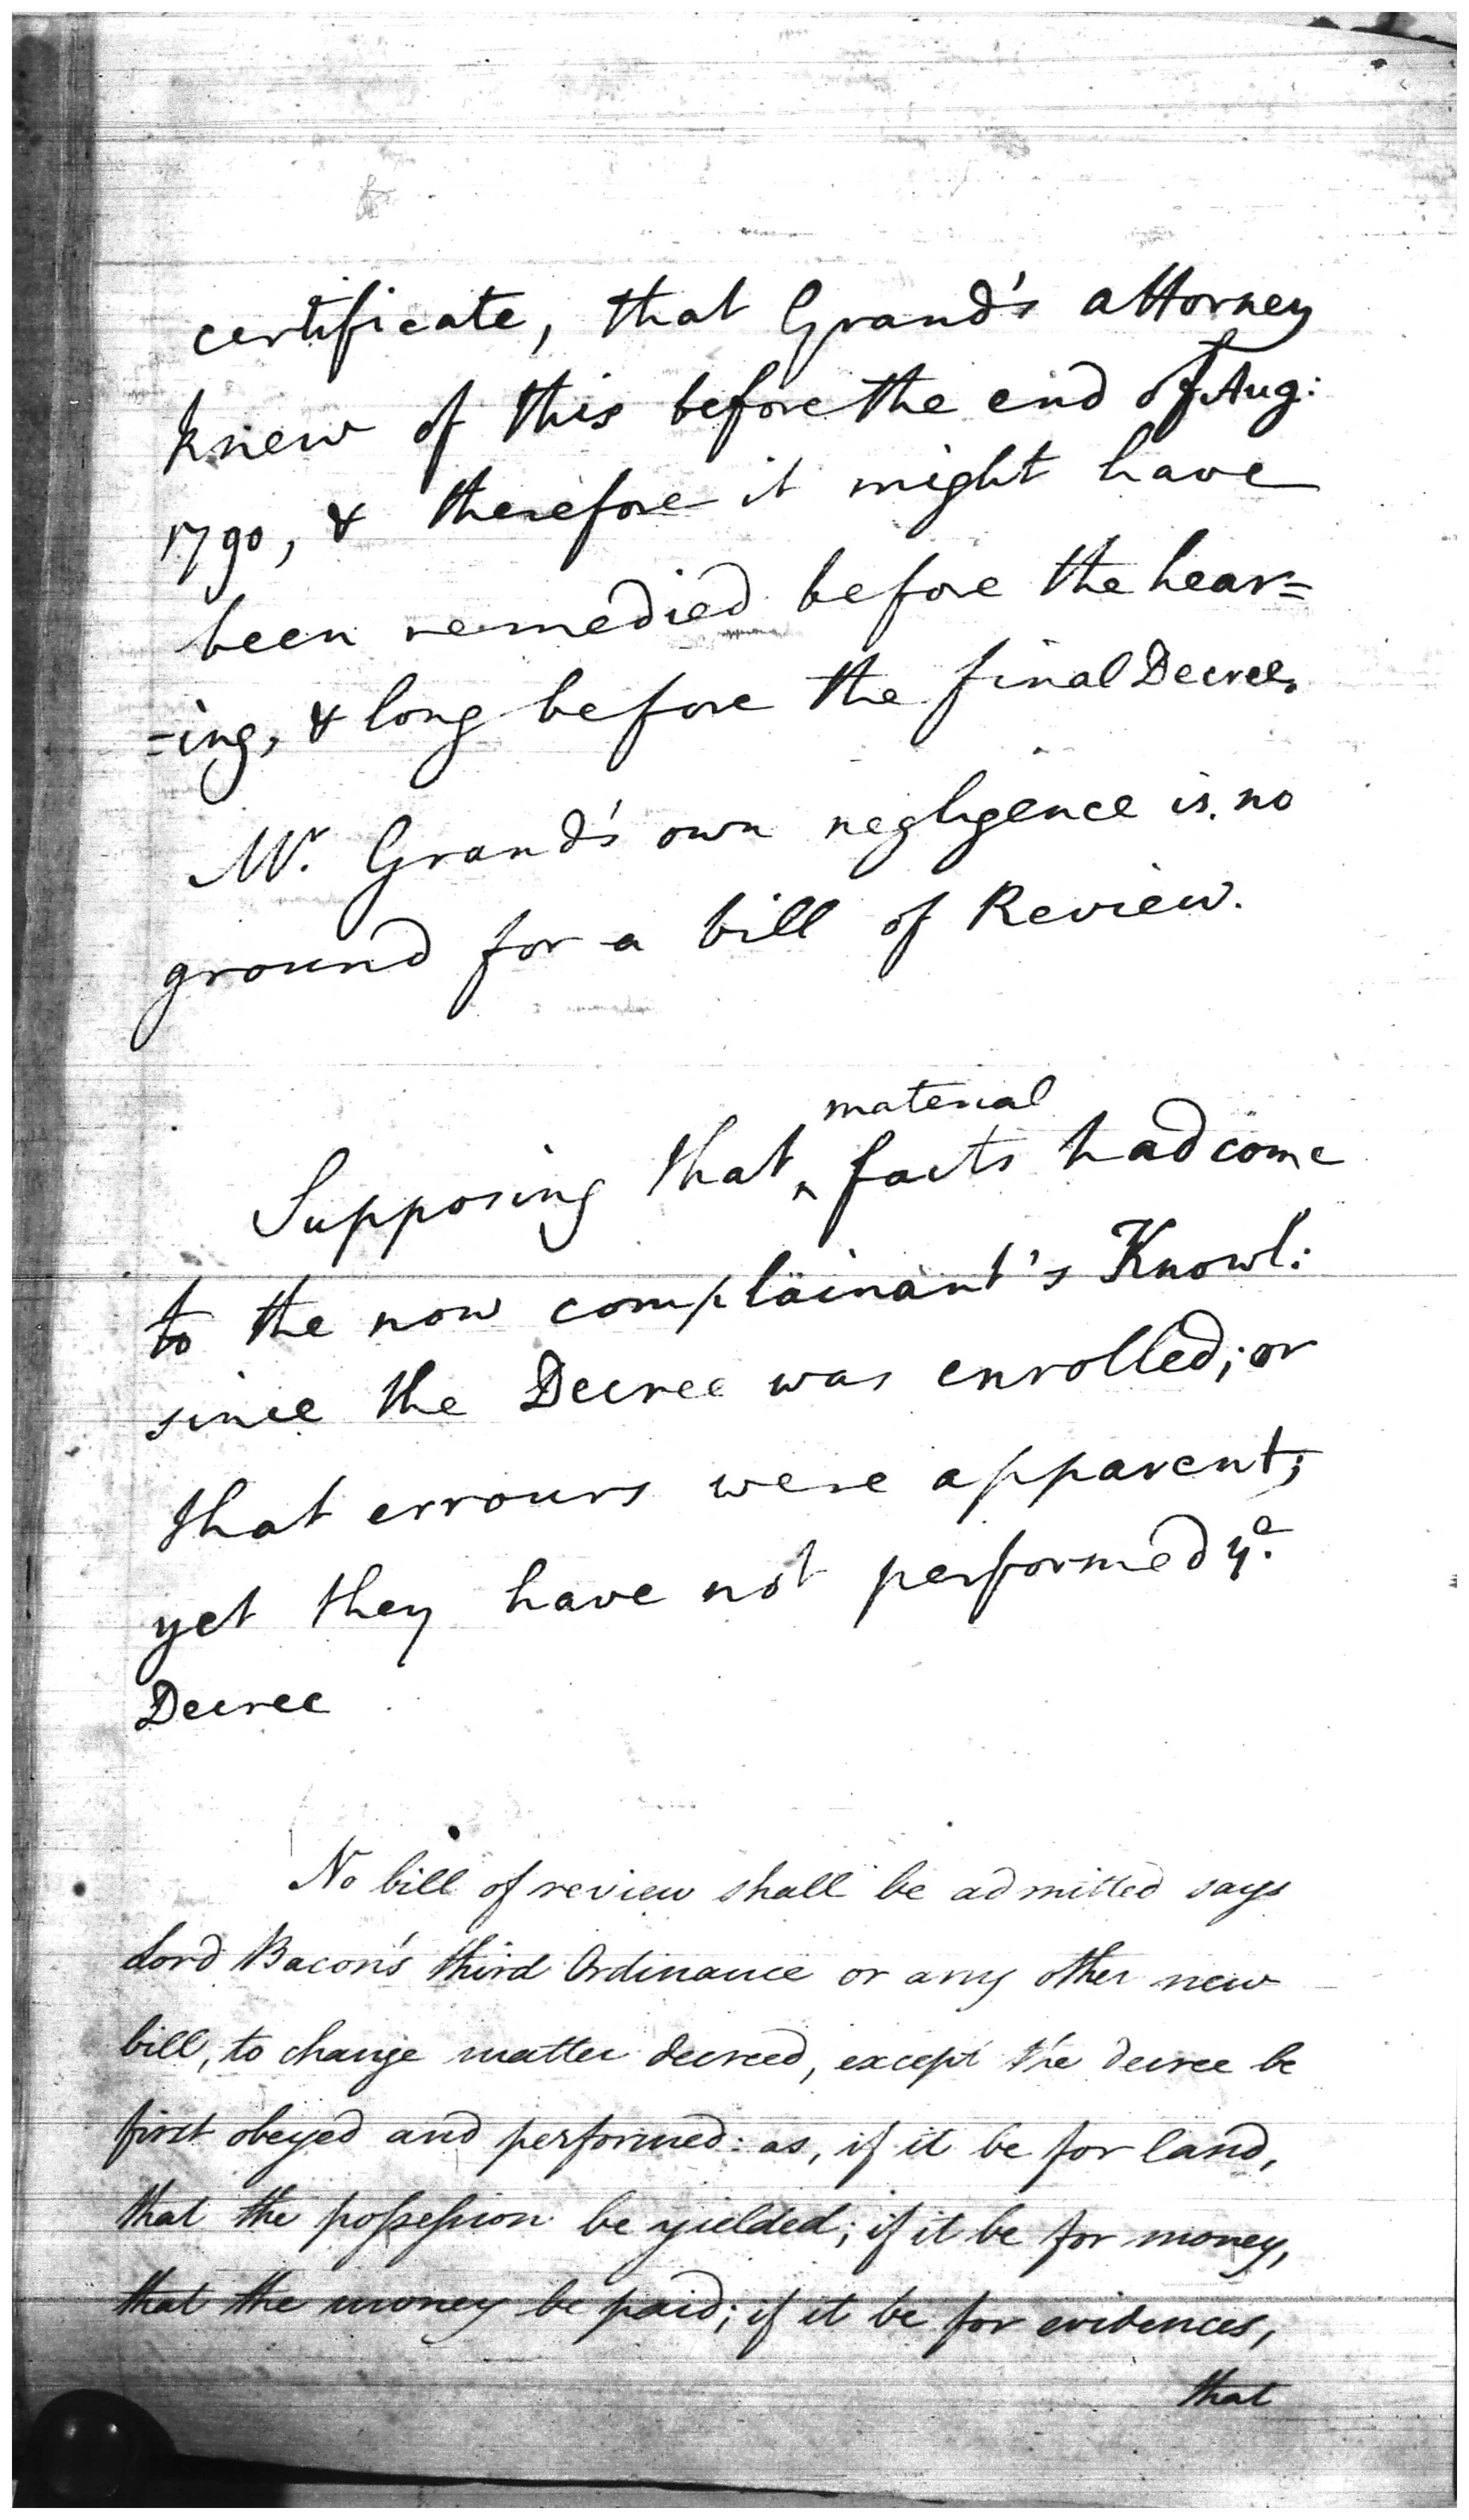 certificate, that Grand's attorney
knew of this before the end of Aug:
1790, & therefore it might have
been remedied before the hear=
=ing, & long before the final Decree.
Mr. Grand's own negligence is no
ground for a bill of Review.
material
Supposing that ‸ facts had come
to the now complainant's Knowl:
since the Decree was enrolled; or
that errours were apparent;
yet they have not performed ye.
Decree
No bill of review shall be admitted says
Lord Bacon's third Ordinance or any other new
bill, to change matter decreed, except the decree be
first obeyed and performed: as, if it be for land,
that the possession be yielded; if it be for money,
that the money be paid; if it be for evidences,
that